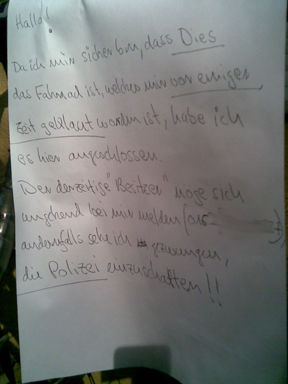 Hallo!!
Da ich mir sicher bin, dass Dies
das Fahrrad ist, welches mir vor einiger
Zeit geklaut worden ist, habe ich
es hier angeschlossen.
Der derzeitige "Besitzer" möge sich
umgehend bei mir melden (015
andernfalls sehe ich gezwungen,
die Polizei einzuschalten!!